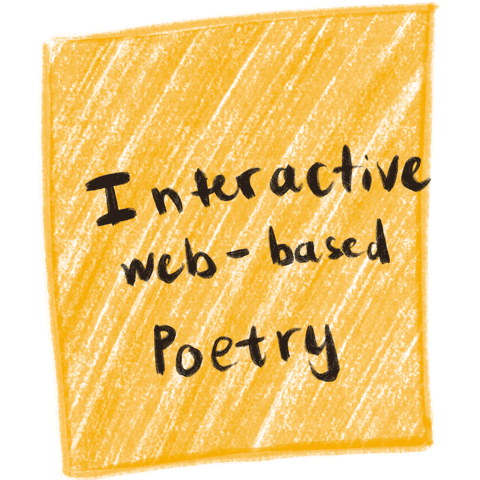 Interactive
web-based
Poetry